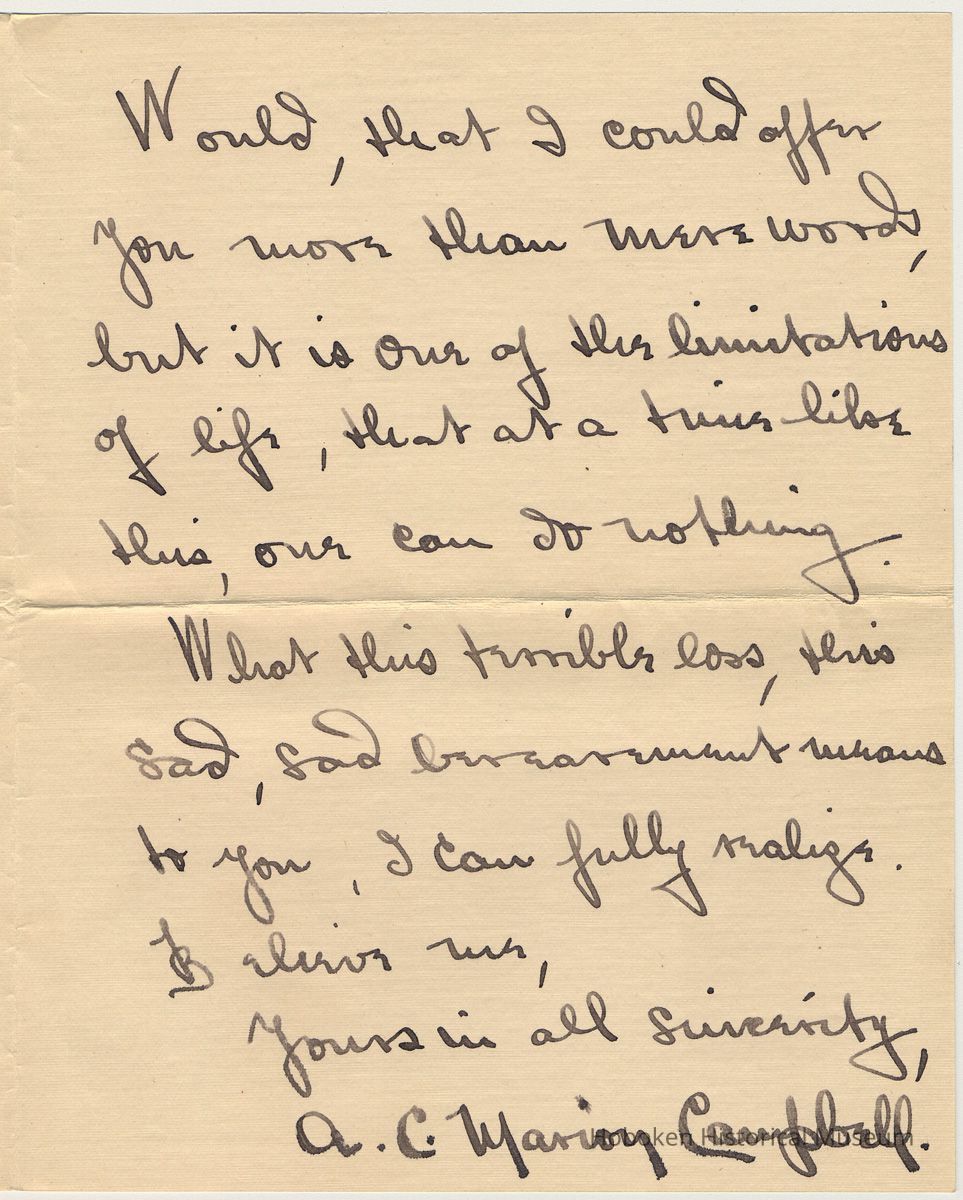 Would, that I could offer
you more than mere words,
but it is one of the limitations
of life, that at a time like
this, one can do nothing.
What this terrible loss, this
sad, sad bereavement means
to you, I can fully realize.
Believe me,
Yours in all sincerity,
A. C. Marion Campbell.
Hoboken Historical Museum